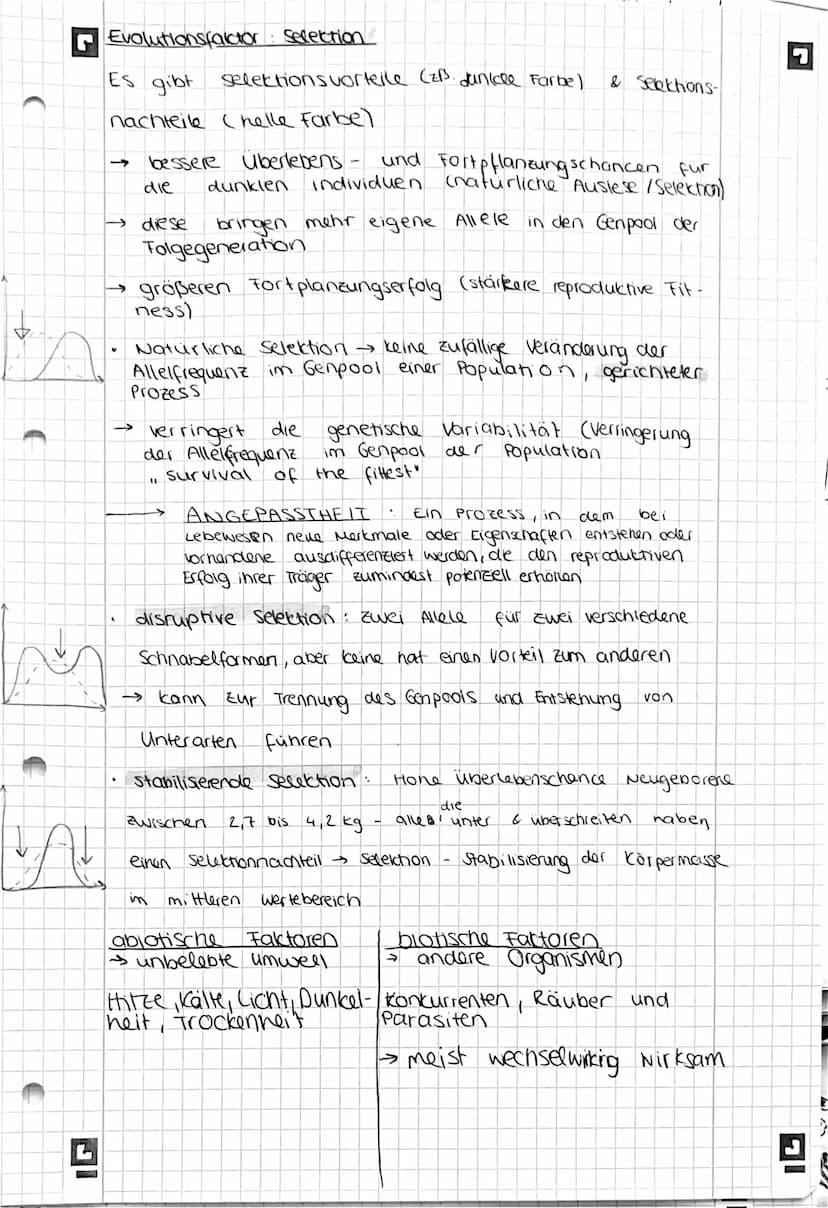 Evolutionsfaktor: Selektion
Es gibt Selektionsvorteile (zB. dunkle Farbe) & Selektions-
nachteile (helle Farbe)
→ bessere Überlebens- und Fortpflanzungschancen für
die dunklen Individuen (natürliche Auslese/Selektion)
→ diese bringen mehr eigene Allele in den Genpool der
Folgegeneration
→ größeren Fortplanzungserfolg (stärkere reproduktive Fit-
ness)
• Natürliche Selektion → keine zufällige Veränderung der
Allelfrequenz im Genpool einer Population, gerichteter
Prozess
→ verringert die genetische Variabilität (Verringerung
der Allelfrequenz im Genpool der Population
„survival of the fittest"
→ ANGEPASSTHEIT: Ein Prozess, in dem bei
Lebewesen neue Merkmale oder Eigenschaften entstehen oder
vorhandene ausdifferenziert werden, die den reproduktiven
Erfolg ihrer Träger zumindest potenzell erhöhen
• disruptive Selektion: zwei Allele für zwei verschiedene
Schnabelformen, aber keine hat einen Vorteil zum anderen
→ kann zur Trennung des Genpools und Entstehung von
Unterarten führen
• stabiliserende Selektion: Hohe Überlebenschance Neugeborene
zwischen 2,7 bis 4,2 kg - alles, die unter & überschreiten haben
einen Selektionnachteil → Selektion - Stabilisierung der Körpermasse
in mittleren Wertebereich
abiotische Faktoren
→ unbelebte Umwelt
Hitze, Kälte, Licht, Dunkel-
heit, Trockenheit
biotische Faktoren
→ andere Organismen
Konkurrenten, Räuber und
Parasiten
→ meist wechselwirkig wirksam